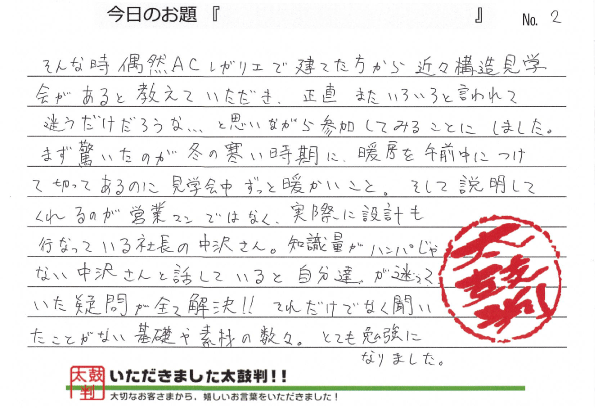 今日のお題『 』 No. 2
そんな時 偶然ACレガリエで建てた方から 近々構造見学
会があると教えていただき、正直 またいろいろと言われて
迷うだけだろうな…と思いながら参加してみることにしました。
まず驚いたのが冬の寒い時期に、暖房を午前中につけ
て切ってあるのに見学会中ずっと暖かいこと。そして説明して
くれるのが営業マンではなく、実際に設計も
行なっている社長の中沢さん。知識量がハンパじゃ
ない中沢さんと話していると自分達が迷って
いた疑問が全て解決!! それだけでなく聞い
たことがない基礎や素材の数々。とても勉強に
なりました。
太鼓判
太鼓判 いただきました太鼓判!!
大切なお客さまから、嬉しいお言葉をいただきました!